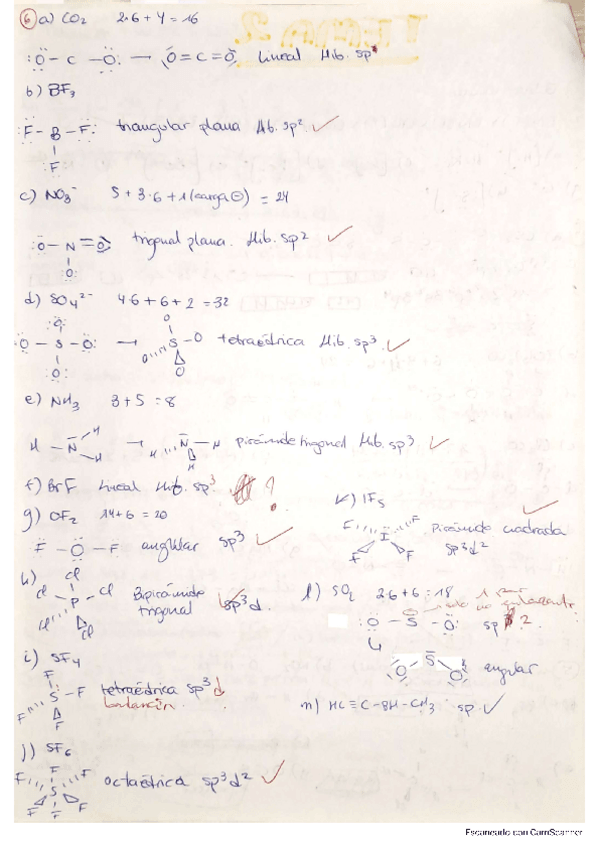 6 a) CO2 2·6 + 4 = 16
:Ö – C – Ö: → O = C = O Lineal Hib. sp
b) BF3
F – B – F: triangular plana Hib. sp2 ✓
F
c) NO3⁻ 5 + 3·6 + 1 (carga ⊖) = 24
O – N = O trigonal plana. Hib. sp2 ✓
O
d) SO4²⁻ 4·6 + 6 + 2 = 32
O O
O – S – O: → S – O tetraédrica Hib. sp3 ✓
O O O
e) NH3 3 + 5 = 8
H – N – H → H N – H pirámide trigonal Hib. sp3 ✓
H H
f) BrF lineal Hib. sp3 ?
g) OF2 14 + 6 = 20
F – O – F angular sp3 ✓
k) IF5 ✓
F F I F F pirámide cuadrada
sp3d2
h) Cl
Cl – P – Cl Bipirámide
trigonal sp3d ✓
Cl Cl
l) SO2 2·6 + 6 = 18
:O – S – O: sp 2
O S O angular
i) SF4
F
S – F tetraédrica sp3 d
F F balancín
m) HC ≡ C – CH – CH3 sp ✓
j) SF6
F F F S F F F octaédrica sp3d2 ✓
Escaneado con CamScanner